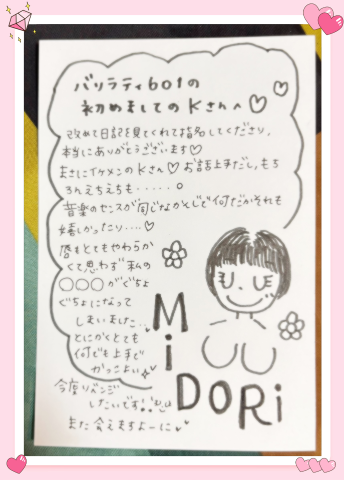 バリラティ601の
初めましてのKさんへ♡
改めて日記を見てくれて指名してくださり、
本当にありがとうございます♡
まさにイケメンのKさん♡お話上手だし、もち
ろんえちえちも・・・・・・。
音楽のセンスが同じなかんじで何だかそれも
嬉しかったり・・・・♡
唇もとてもやわらか
くて思わず私の
○○○がぐちょ
ぐちょになって
しまいました・・
とにかくとても
何でも上手で
かっこよい
今度リベンジ
したいです!!
また会えますよーに
MiDORi